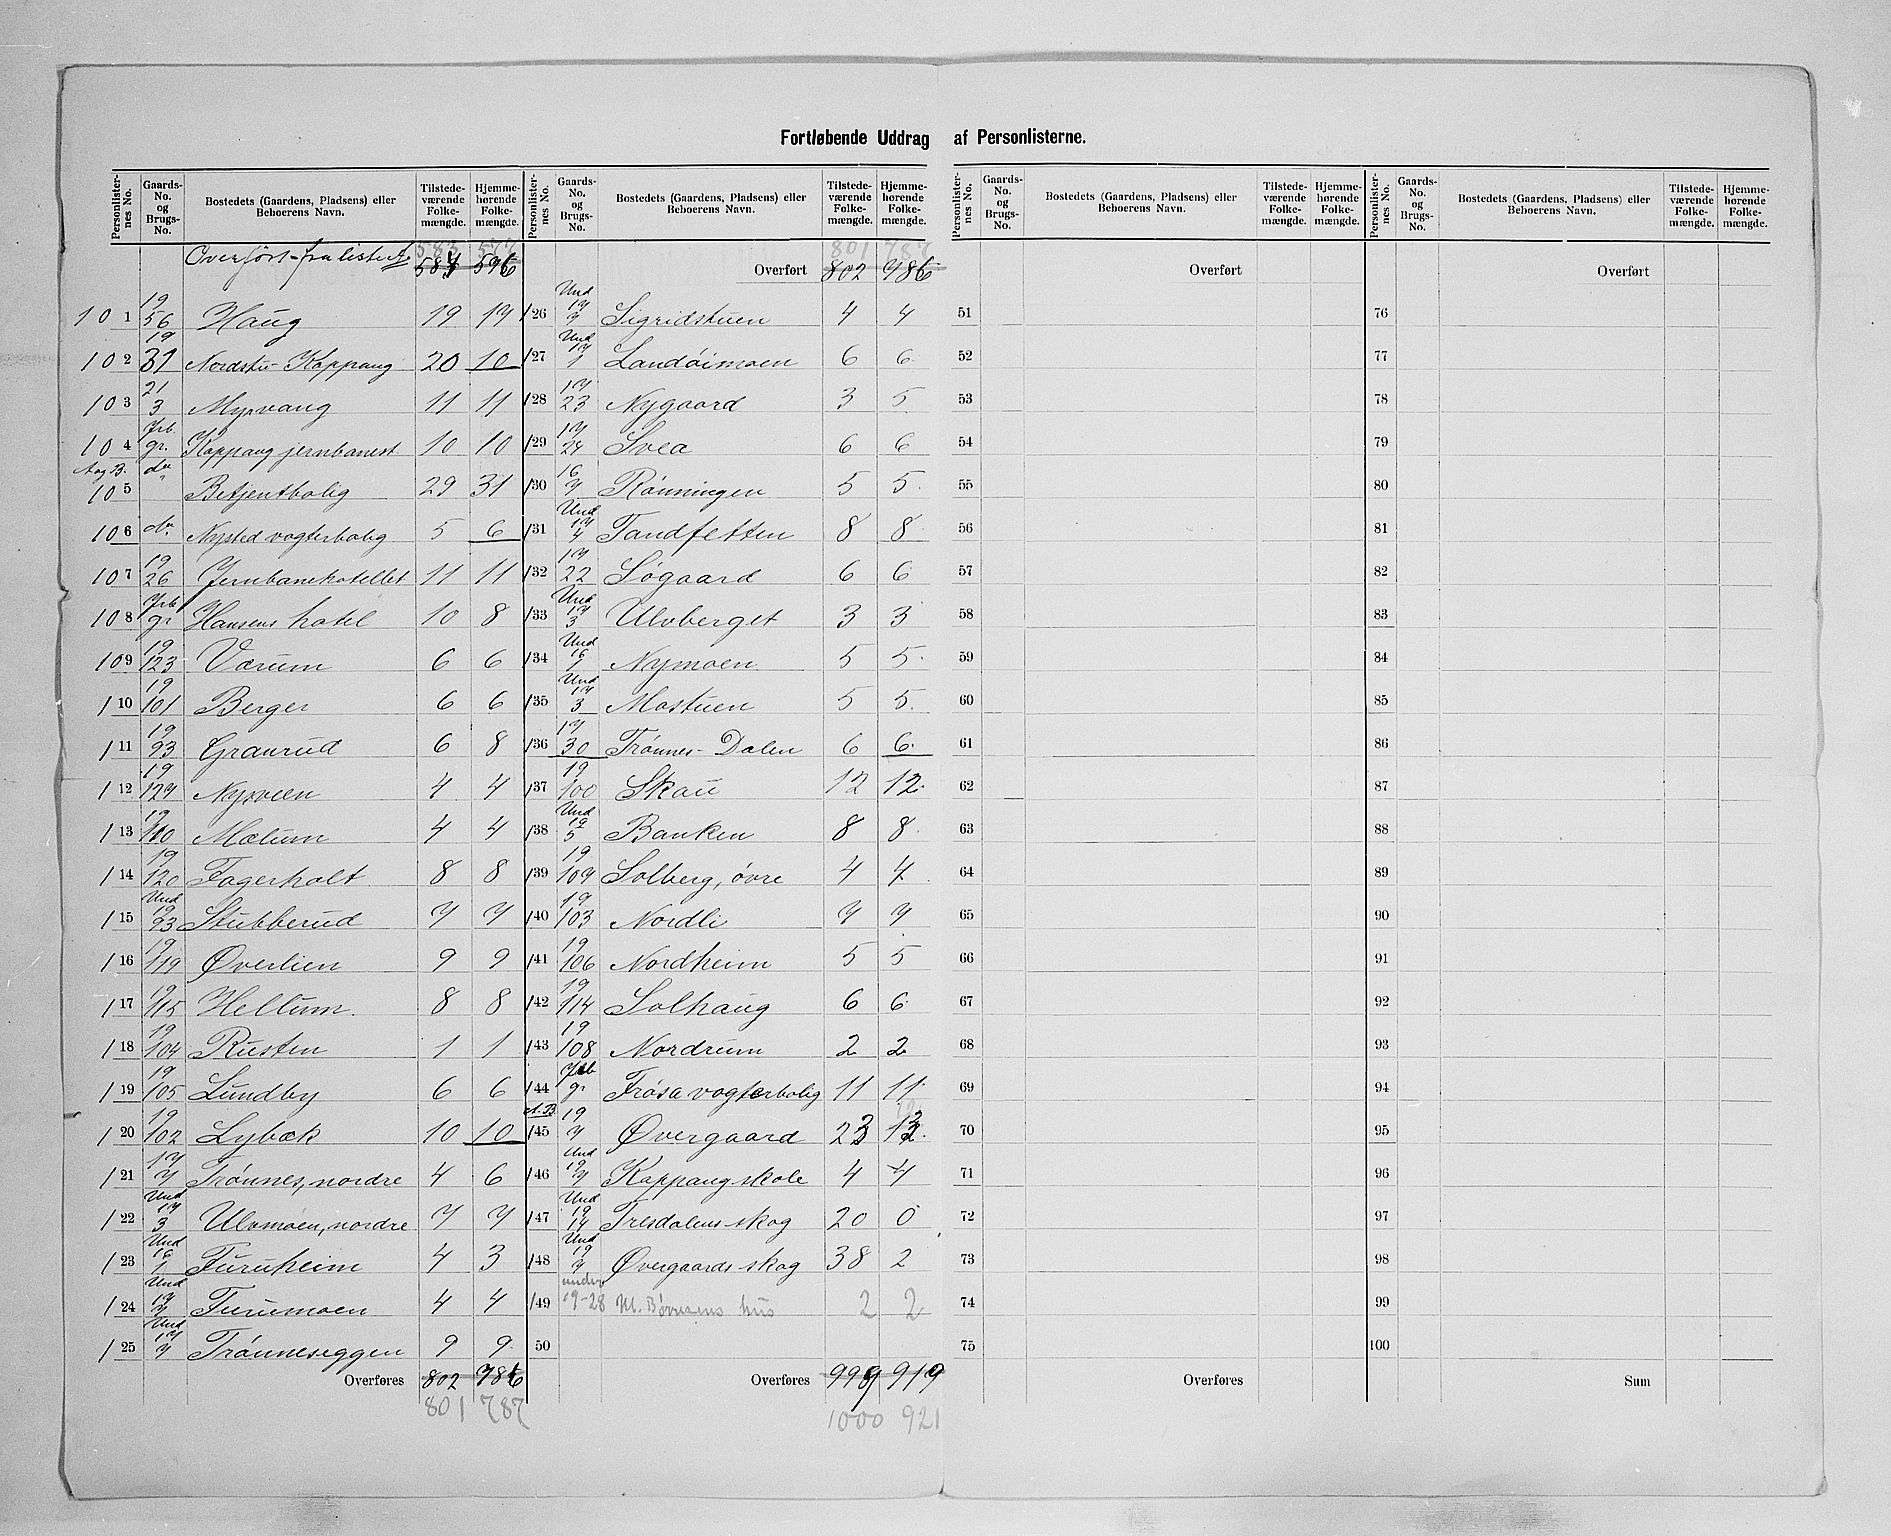 Fortløbende Uddrag af Personlisterne.
Personlisternes No. Gaards-No. og Brugs-No. Bostedets (Gaardens, Pladsens) eller Beboerens Navn. Tilstedeværende Folkemængde. Hjemmehørende Folkemængde.
Overført fra liste 583 577
584 576
101 19/56 Haug 19 17
102 19/31 Nordstu-Koppang 20 10
103 21/3 Myrvang 11 11
104 Jrb. gr. Koppang jernbanest 10 10
105 do Betjentbolig 29 31
106 do Nysted vogterbolig 5 6
107 19/26 Jernbanehotellet 11 11
108 Jrb gr Hansens hotel 10 8
109 19/123 Værum 6 6
110 19/101 Berger 6 6
111 19/93 Granrud 6 8
112 19/127 Nysveen 4 4
113 19/110 Mælum 4 4
114 19/120 Fagerholt 8 8
115 Und 19/93 Stubberud 7 7
116 19/119 Øverlien 9 9
117 19/115 Hellum. 8 8
118 19/104 Rusten 1 1
119 19/105 Lundby 6 6
120 19/102 Lybæk 10 10
121 17/7 Trønnes, nordre 4 6
122 Und 17/3 Ulvmoen, nordre 7 7
123 Und 16/1 Furuheim 4 3
124 Und 17/7 Furumoen 4 4
125 Und 17/7 Trønneseggen 9 9
Overføres 802 786
801 787
Personlisternes No. Gaards-No. og Brugs-No. Bostedets (Gaardens, Pladsens) eller Beboerens Navn. Tilstedeværende Folkemængde. Hjemmehørende Folkemængde.
801 787
Overført 802 786
126 Und 17/7 Sigridstuen 4 4
127 Und 17/1 Landøimoen 6 6
128 17/23 Nygaard 3 5
129 17/24 Svea 6 6
130 16/7 Rønningen 5 5
131 Und 17/4 Tandsetten 8 8
132 17/22 Søgaard 6 6
133 Und 17/3 Ulvberget 3 3
134 Und 16/1 Nymoen 5 5
135 Und 17/3 Mostuen 5 5
136 17/30 Trønnes-Dalen 6 6
137 19/100 Skau 12 12
138 Und 19/5 Banken 8 8
139 19/109 Solberg, øvre 4 4
140 19/103 Nordli 7 7
141 19/106 Nordheim 5 5
142 19/114 Solhaug 6 6
143 19/108 Nordrum 2 2
144 Jrb gr. Frøsa vogterbolig 11 11
145 19/7 Øvergaard 23 13
146 Und 19/7 Koppang skole 4 4
147 Und 19/14 Tresdalens skog 20 0
148 Und 19/7 Øvergaards skog 38 2
149 under 19-28 M. Børresens hus 2 2
50
Overføres 998 919
1000 921
Personlisternes No. Gaards-No. og Brugs-No. Bostedets (Gaardens, Pladsens) eller Beboerens Navn. Tilstedeværende Folkemængde. Hjemmehørende Folkemængde.
Overført
51
52
53
54
55
56
57
58
59
60
61
62
63
64
65
66
67
68
69
70
71
72
73
74
75
Overføres
Personlisternes No. Gaards-No. og Brugs-No. Bostedets (Gaardens, Pladsens) eller Beboerens Navn. Tilstedeværende Folkemængde. Hjemmehørende Folkemængde.
Overført
76
77
78
79
80
81
82
83
84
85
86
87
88
89
90
91
92
93
94
95
96
97
98
99
100
Sum